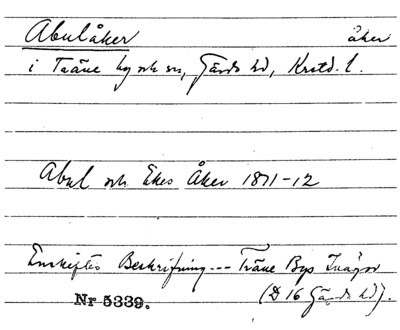 Abulåker åker
i Träne by och sn, Gärds hd, Krstd. l.
Abul och Ekes Åker 1871-12
Enskiftes Beskrifning --- Träne Bys Inägor
Nr 5339. (D 16 Gärds hd).